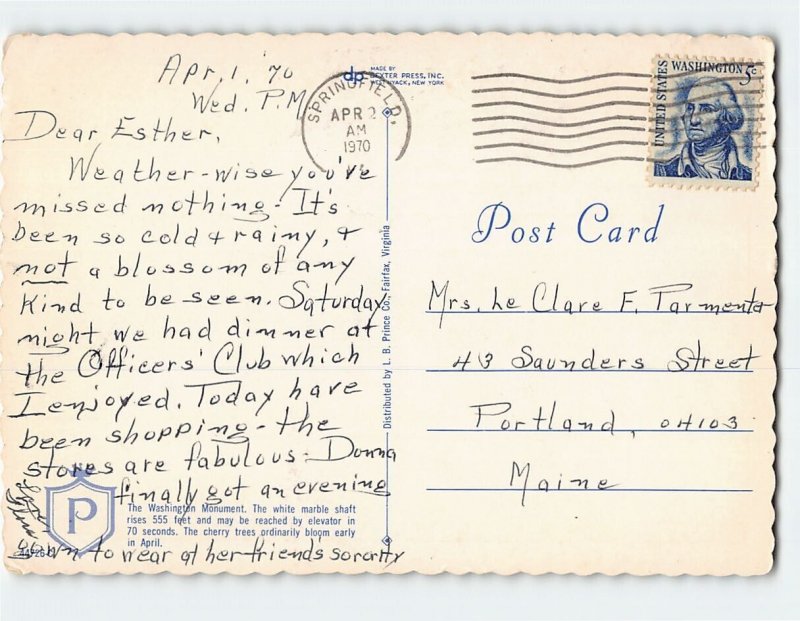 Apr. 1, '70
Wed. P.M.
Dear Esther,
Weather-wise you've
missed nothing - It's
been so cold & rainy, &
not a blossom of any
kind to be seen. Saturday
night we had dinner at
the Officers' Club which
I enjoyed. Today have
been shopping - the
stores are fabulous - Donna
finally got an evening
gown to wear at her friend's sorority
P
The Washington Monument. The white marble shaft
rises 555 feet and may be reached by elevator in
70 seconds. The cherry trees ordinarily bloom early
in April.
dp MADE BY
DEXTER PRESS, INC.
WEST NYACK, NEW YORK
Distributed by L. B. Prince Co., Fairfax, Virginia
SPRINGFIELD,
APR 2
AM
1970
UNITED STATES
WASHINGTON 5c
Post Card
Mrs. Le Clare F. Parmenter
43 Saunders Street
Portland, 04103
Maine